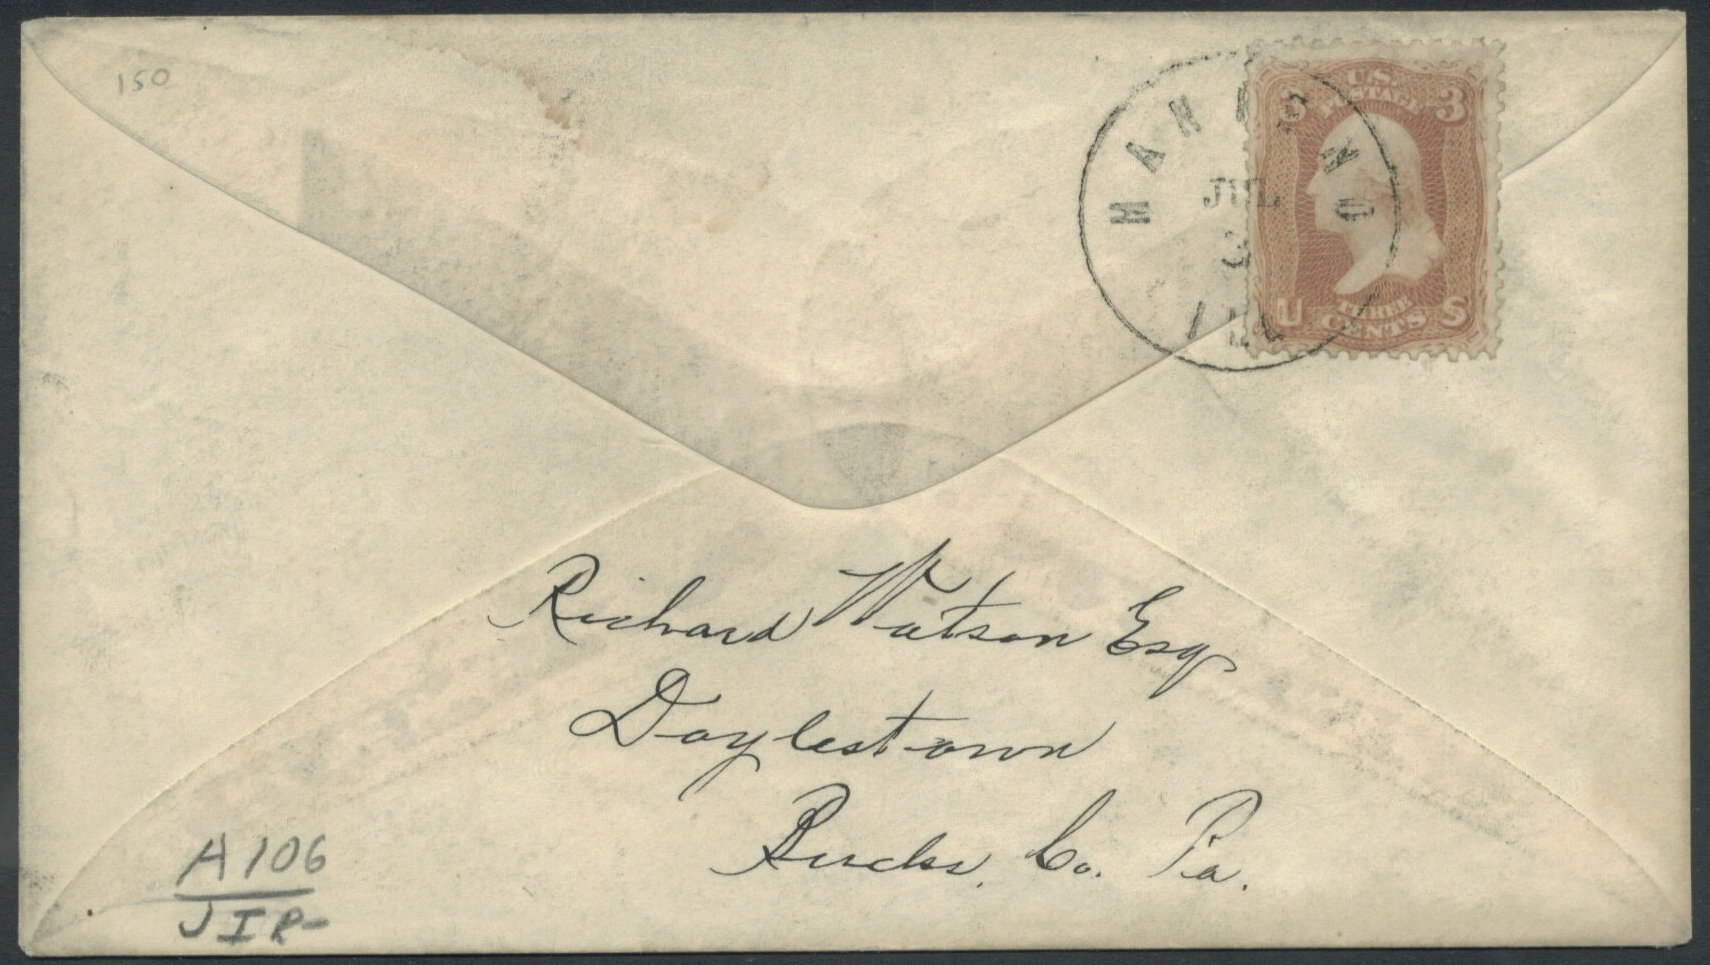 150
U.S.
3 POSTAGE 3
JUL
3
THREE
U CENTS S
Richard Watson Esq
Doylestown
Bucks. Co. Pa.
A106
JIR-